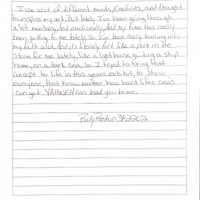 I use alot of different moods, Emotions, and thought
to express my art. But lately I've been going through
alot mentally, and emotionally, and my time has really
been getting to me lately, So I've been really leaning into
my faith alot. And its literally felt like a port in the
Storm for me lately, like a light house guiding a ship
home, on a dark sea, So I tried to bring that
concept to life in this years exhibit, to Show
everyone, that know matter how hard life's seas
can get YAHWEH can lead you home.